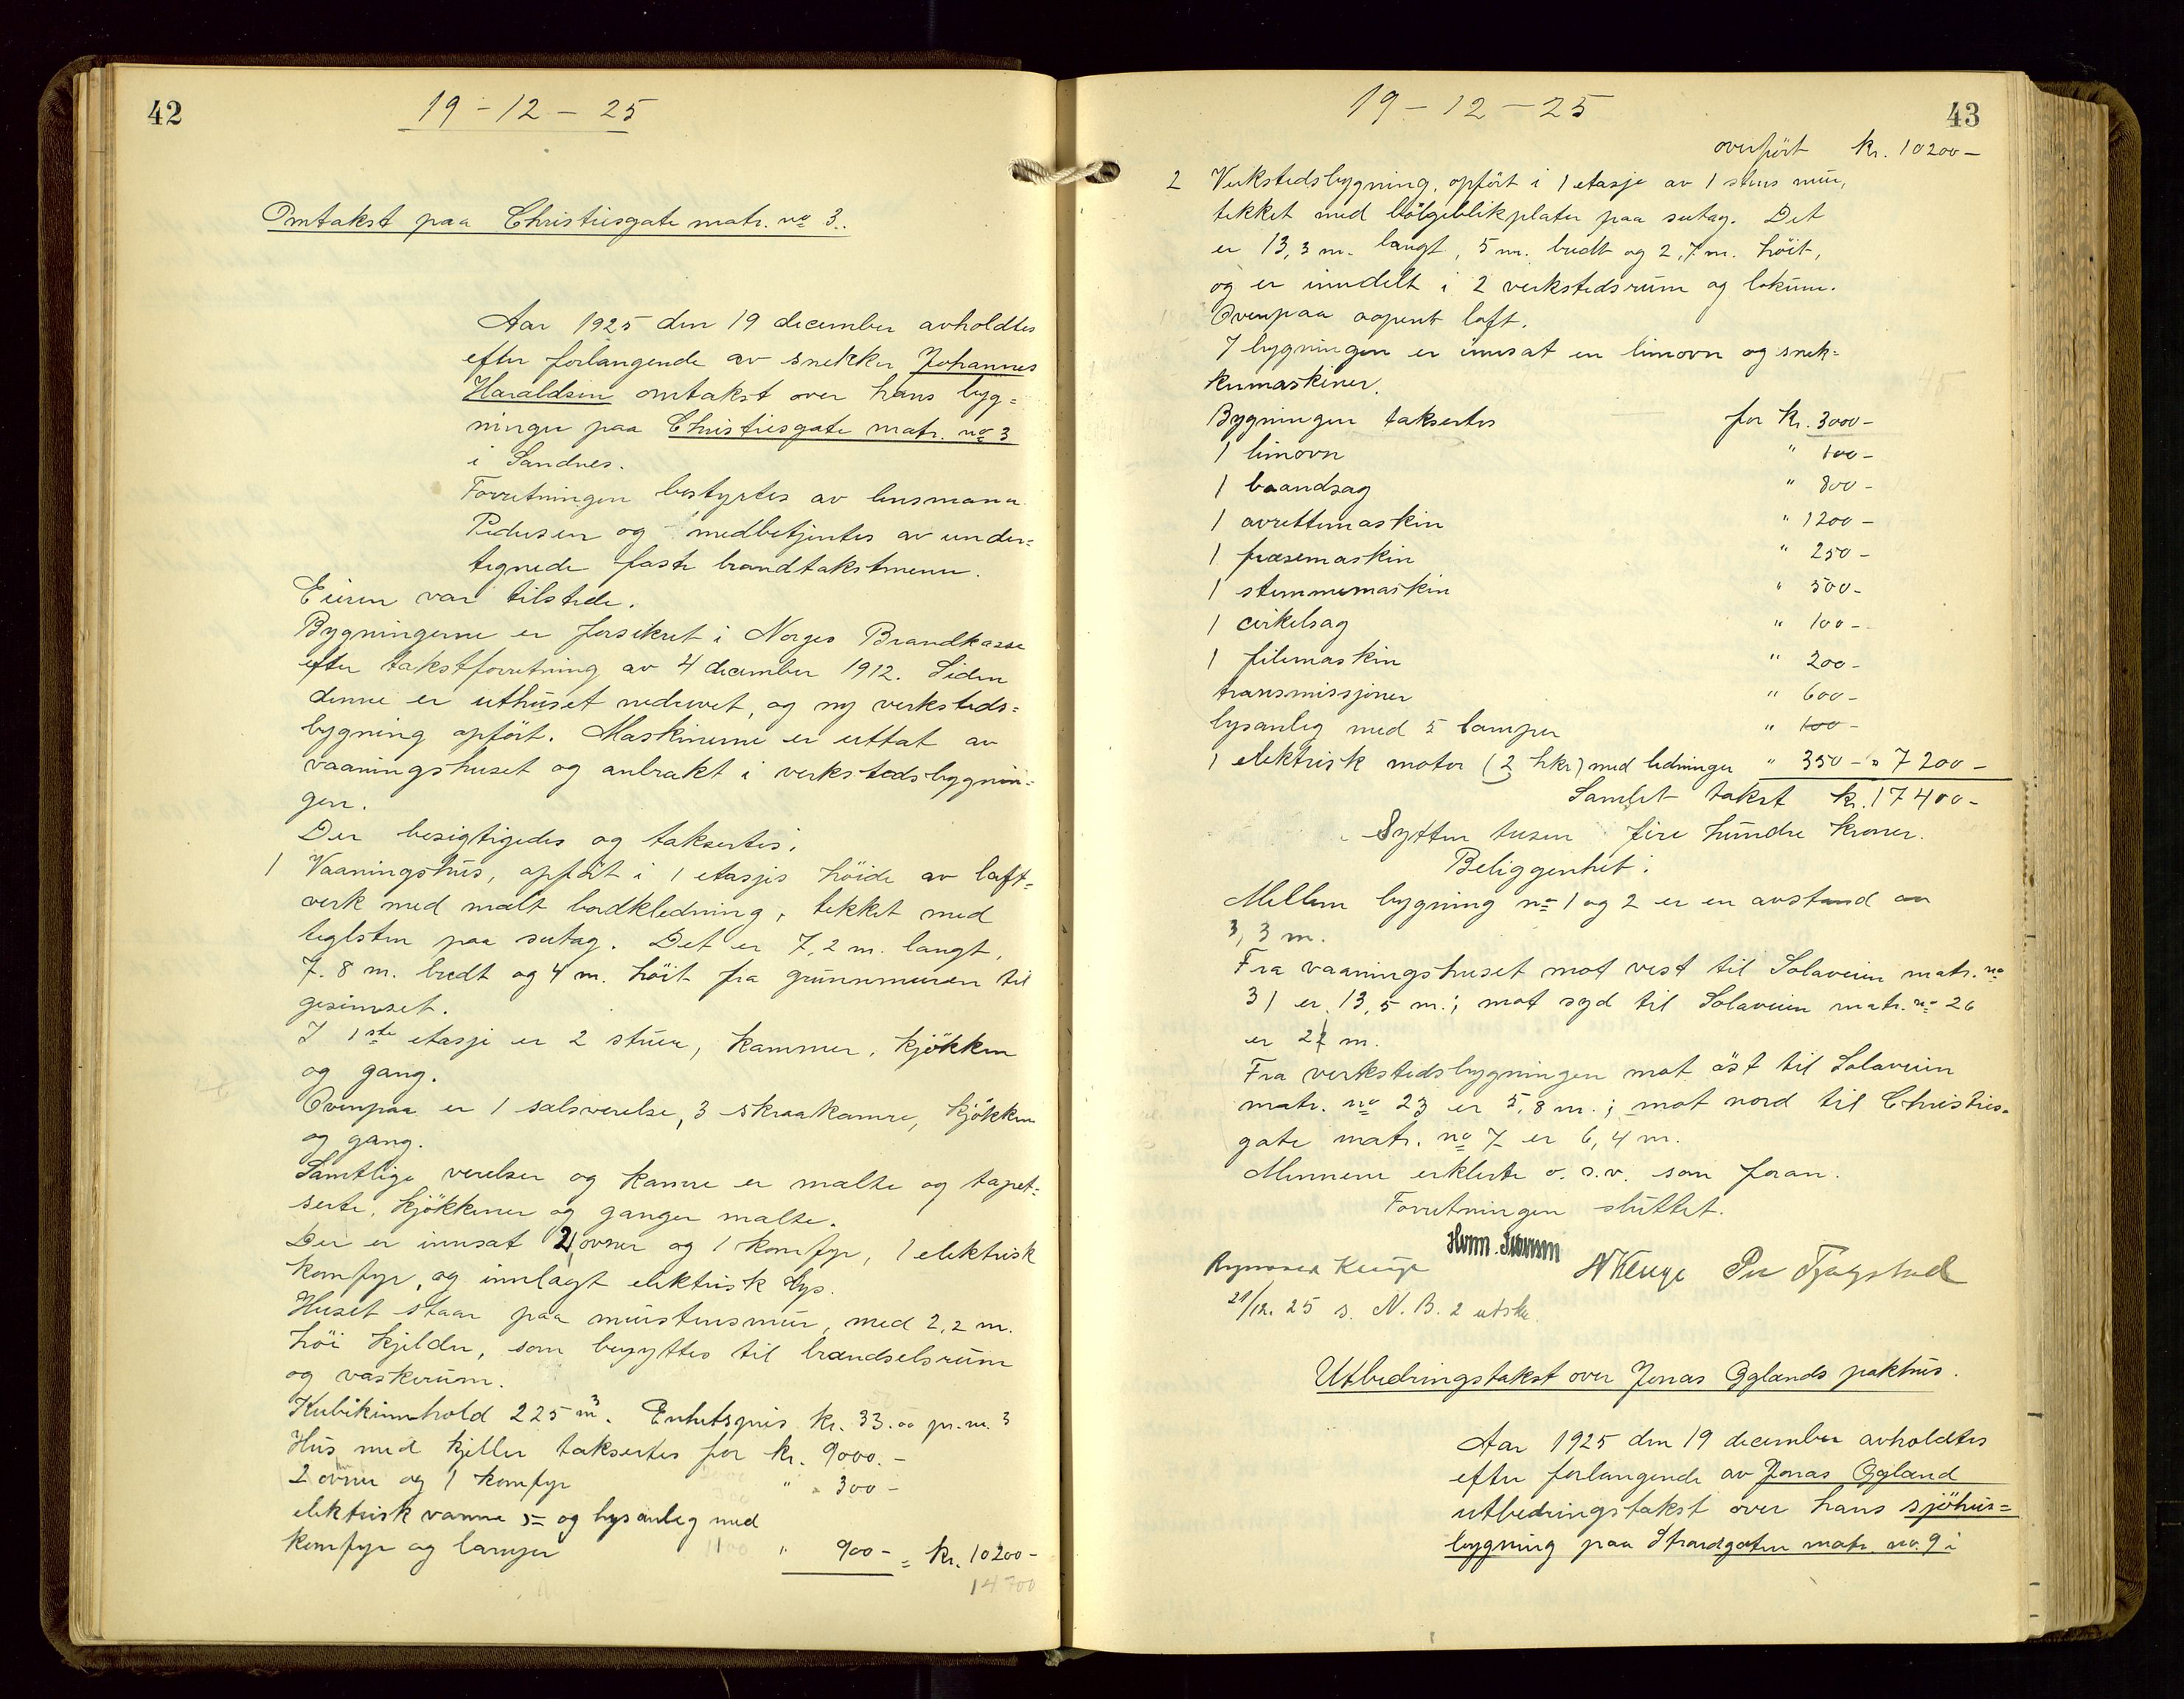 42
19-12-25
Omtakst paa Christiesgate matr. no 3.
Aar 1925 den 19 december avholdtes
efter forlangende av snekker Johannes
Haraldsen omtakst over hans byg=
ninger paa Christiesgate matr. no 3
i Sandnes.
Forretningen bestyrtes av lensmann
Pedersen og medbetjentes av under=
tegnede faste brandtakstmenn.
Eieren var tilstede.
Bygningerne er forsikret i Norges Brandkasse
efter takstforretning av 4 december 1912. Siden
denne er uthuset nedrevet, og ny verksteds=
bygning opført. Maskinerne er uttat av
vaaningshuset og anbrakt i verkstedsbygnin=
gen.
Der besigtigedes og taksertes:
1 Vaaningshus, opført i 1 etasjes höide av laft=
verk med malt bordkledning, tekket med
teglsten paa sutag. Det er 7,2 m. langt,
7.8 m. bredt og 4 m. höit fra grunnmuren til
gesimset.
I 1ste etasje er 2 stuer, kammer, kjökken
og gang.
Ovenpaa er 1 salsverelse, 3 skraakamre, kjökken
og gang.
Samtlige verelser og kamre er malte og tapet=
serte, kjökkener og ganger malte.
Der er innsat 2 ovner og 1 komfyr, 1 elektrisk
komfyr, og innlagt elektrisk lys.
Huset staar paa murstensmur, med 2,2 m.
höi kjelder, som benyttes til brændselsrum
og vaskerum.
Kubikinnhold 225 m3. Enhetspris kr. 33.00 pr. m.3
Hus med kjeller taksertes for kr. 9000.-
2 ovner og 1 komfyr " " 300-
elektrisk varme = og lysanleg med
komfyr og lamper " 900- = kr. 10200-
14700
43
19-12-25
overført kr. 10200-
2 Verkstedsbygning, opført i 1 etasje av 1 stens mur,
tekket med bölgeblikplater paa sutag. Det
er 13,3 m. langt, 5 m. bredt og 2,7 m. höit,
og er inndelt i 2 verkstedsrum og lokum.
Ovenpaa aapent loft.
I bygningen er innsat en limovn og snek=
kermaskiner.
Bygningen taksertes for kr. 3000-
1 limovn " 100-
1 baandsag " 800-
1 avrettemaskin " 1200-
1 fræsemaskin " 250-
1 stemmemaskin " 500-
1 cirkelsag " 100-
1 filemaskin " 200-
transmissjoner " 600-
lysanleg med 5 lamper " 100-
1 elektrisk motor (2 hkr) med ledninger " 350- " 7200-
Samlet takst kr. 17400-
Sytten tusen fire hundre kroner.
Beliggenhet:
Mellem bygning no 1 og 2 er en avstand av
3,3 m.
Fra vaaningshuset mot vest til Solaveien matr. no
31 er 13,5 m.; mot syd til Solaveien matr. no 26
er 22 m.
Fra verkstedsbygningen mot öst til Solaveien
matr. no 23 er 5,8 m.; mot nord til Christies=
gate matr. no 7 er 6,4 m.
Mennene erklerte o.s.v. som foran.
Forretningen sluttet.
N Kenge Per Tjågstad
21/12. 25 s. N. B. 2 utskr.
Utbedringstakst over Jonas Øglænds pakhus.
Aar 1925 den 19 december avholdtes
efter forlangende av Jonas Øgland
utbedringstakst over hans sjöhus=
bygning paa Strandgaten matr. no. 9 i